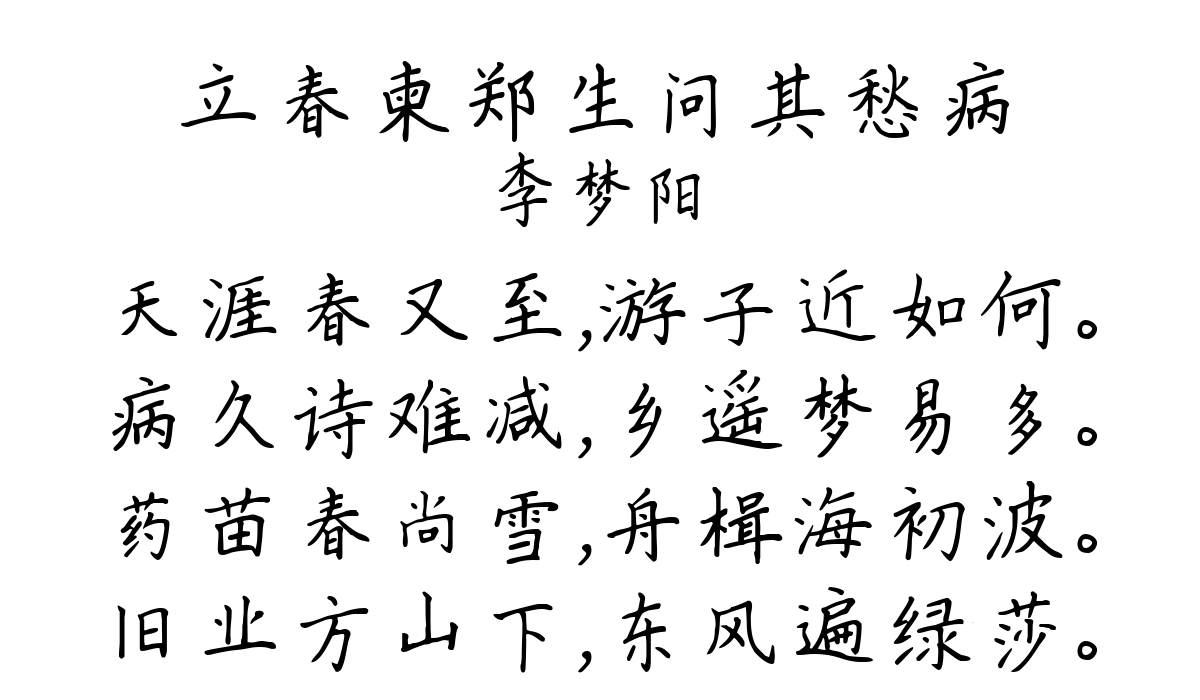 立春柬郑生问其愁病
李梦阳
天涯春又至,游子近如何。
病久诗难减,乡遥梦易多。
药苗春尚雪,舟楫海初波。
旧业方山下,东风遍绿莎。